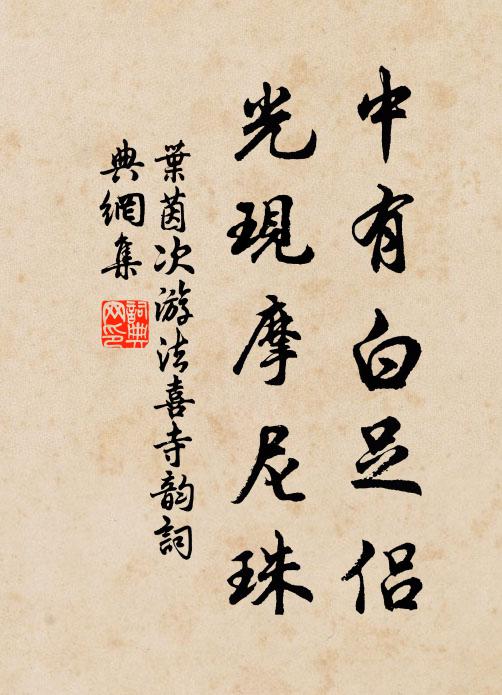 中有白足侶
光現摩尼珠
葉茵次游法喜寺韵詞
典網集
詞典
网印